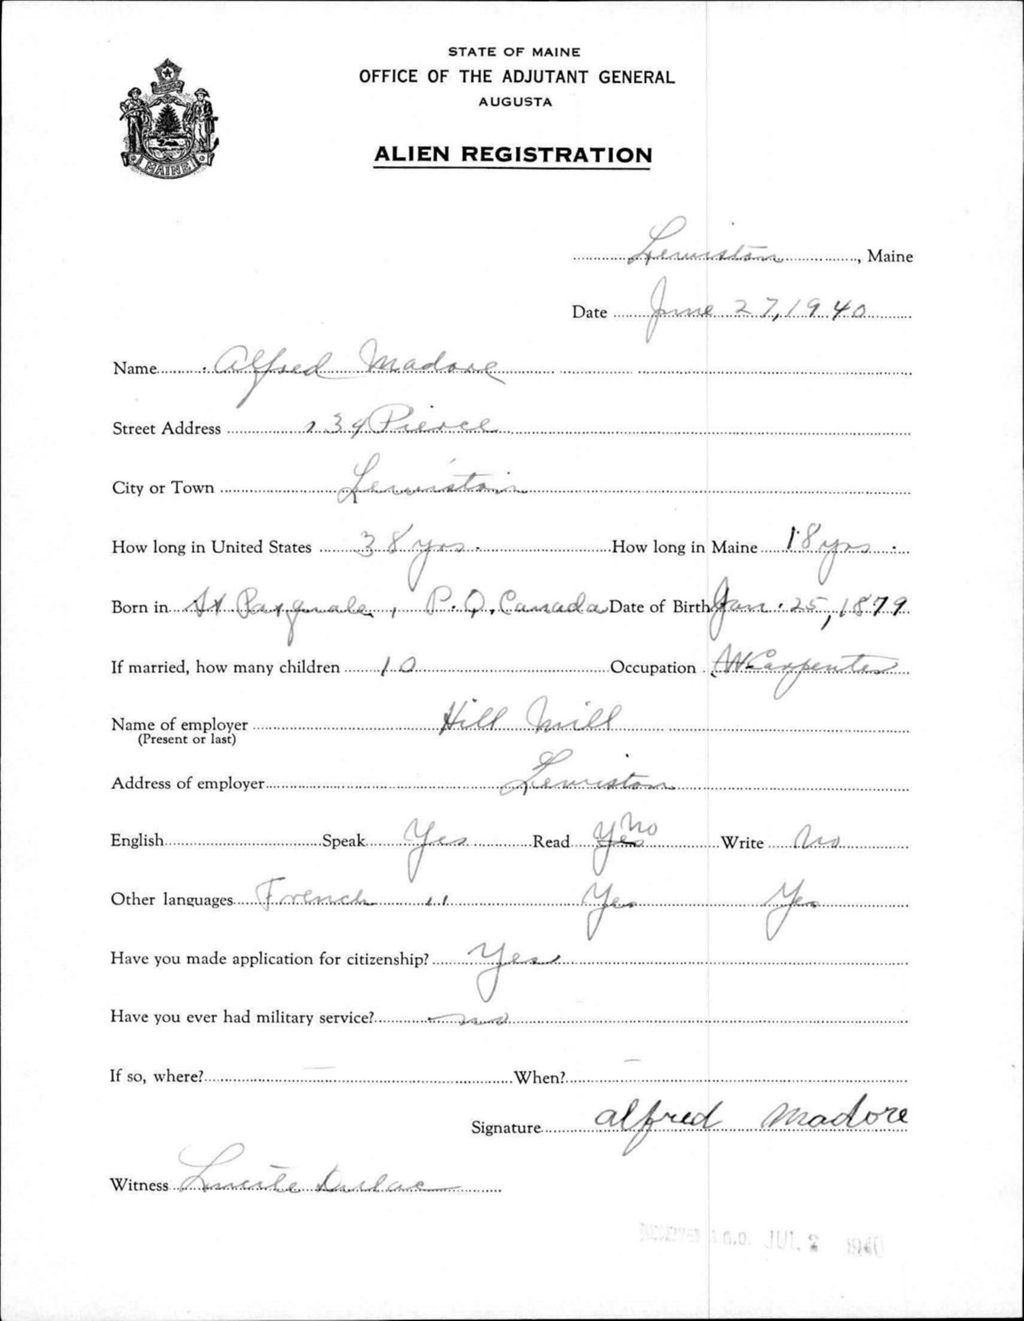 STATE OF MAINE
OFFICE OF THE ADJUTANT GENERAL
AUGUSTA
ALIEN REGISTRATION
MAINE
Lewiston, Maine
Date June 27, 1940
Name Alfred Madore
Street Address 134 Pierce
City or Town Lewiston
How long in United States 38 yrs. How long in Maine 18 yrs.
Born in St Pasquale, P.Q. Canada Date of Birth Jan. 25, 1879
If married, how many children 10 Occupation Carpenter
Name of employer Hill Mill
(Present or last)
Address of employer Lewiston
English Speak Yes Read Yes No Write No
Other languages French " Yes Yes
Have you made application for citizenship? Yes
Have you ever had military service? no
If so, where? — When? —
Signature Alfred Madore
Witness Lucile Dulac
RECEIVED A.G.O. JUL 2 1940